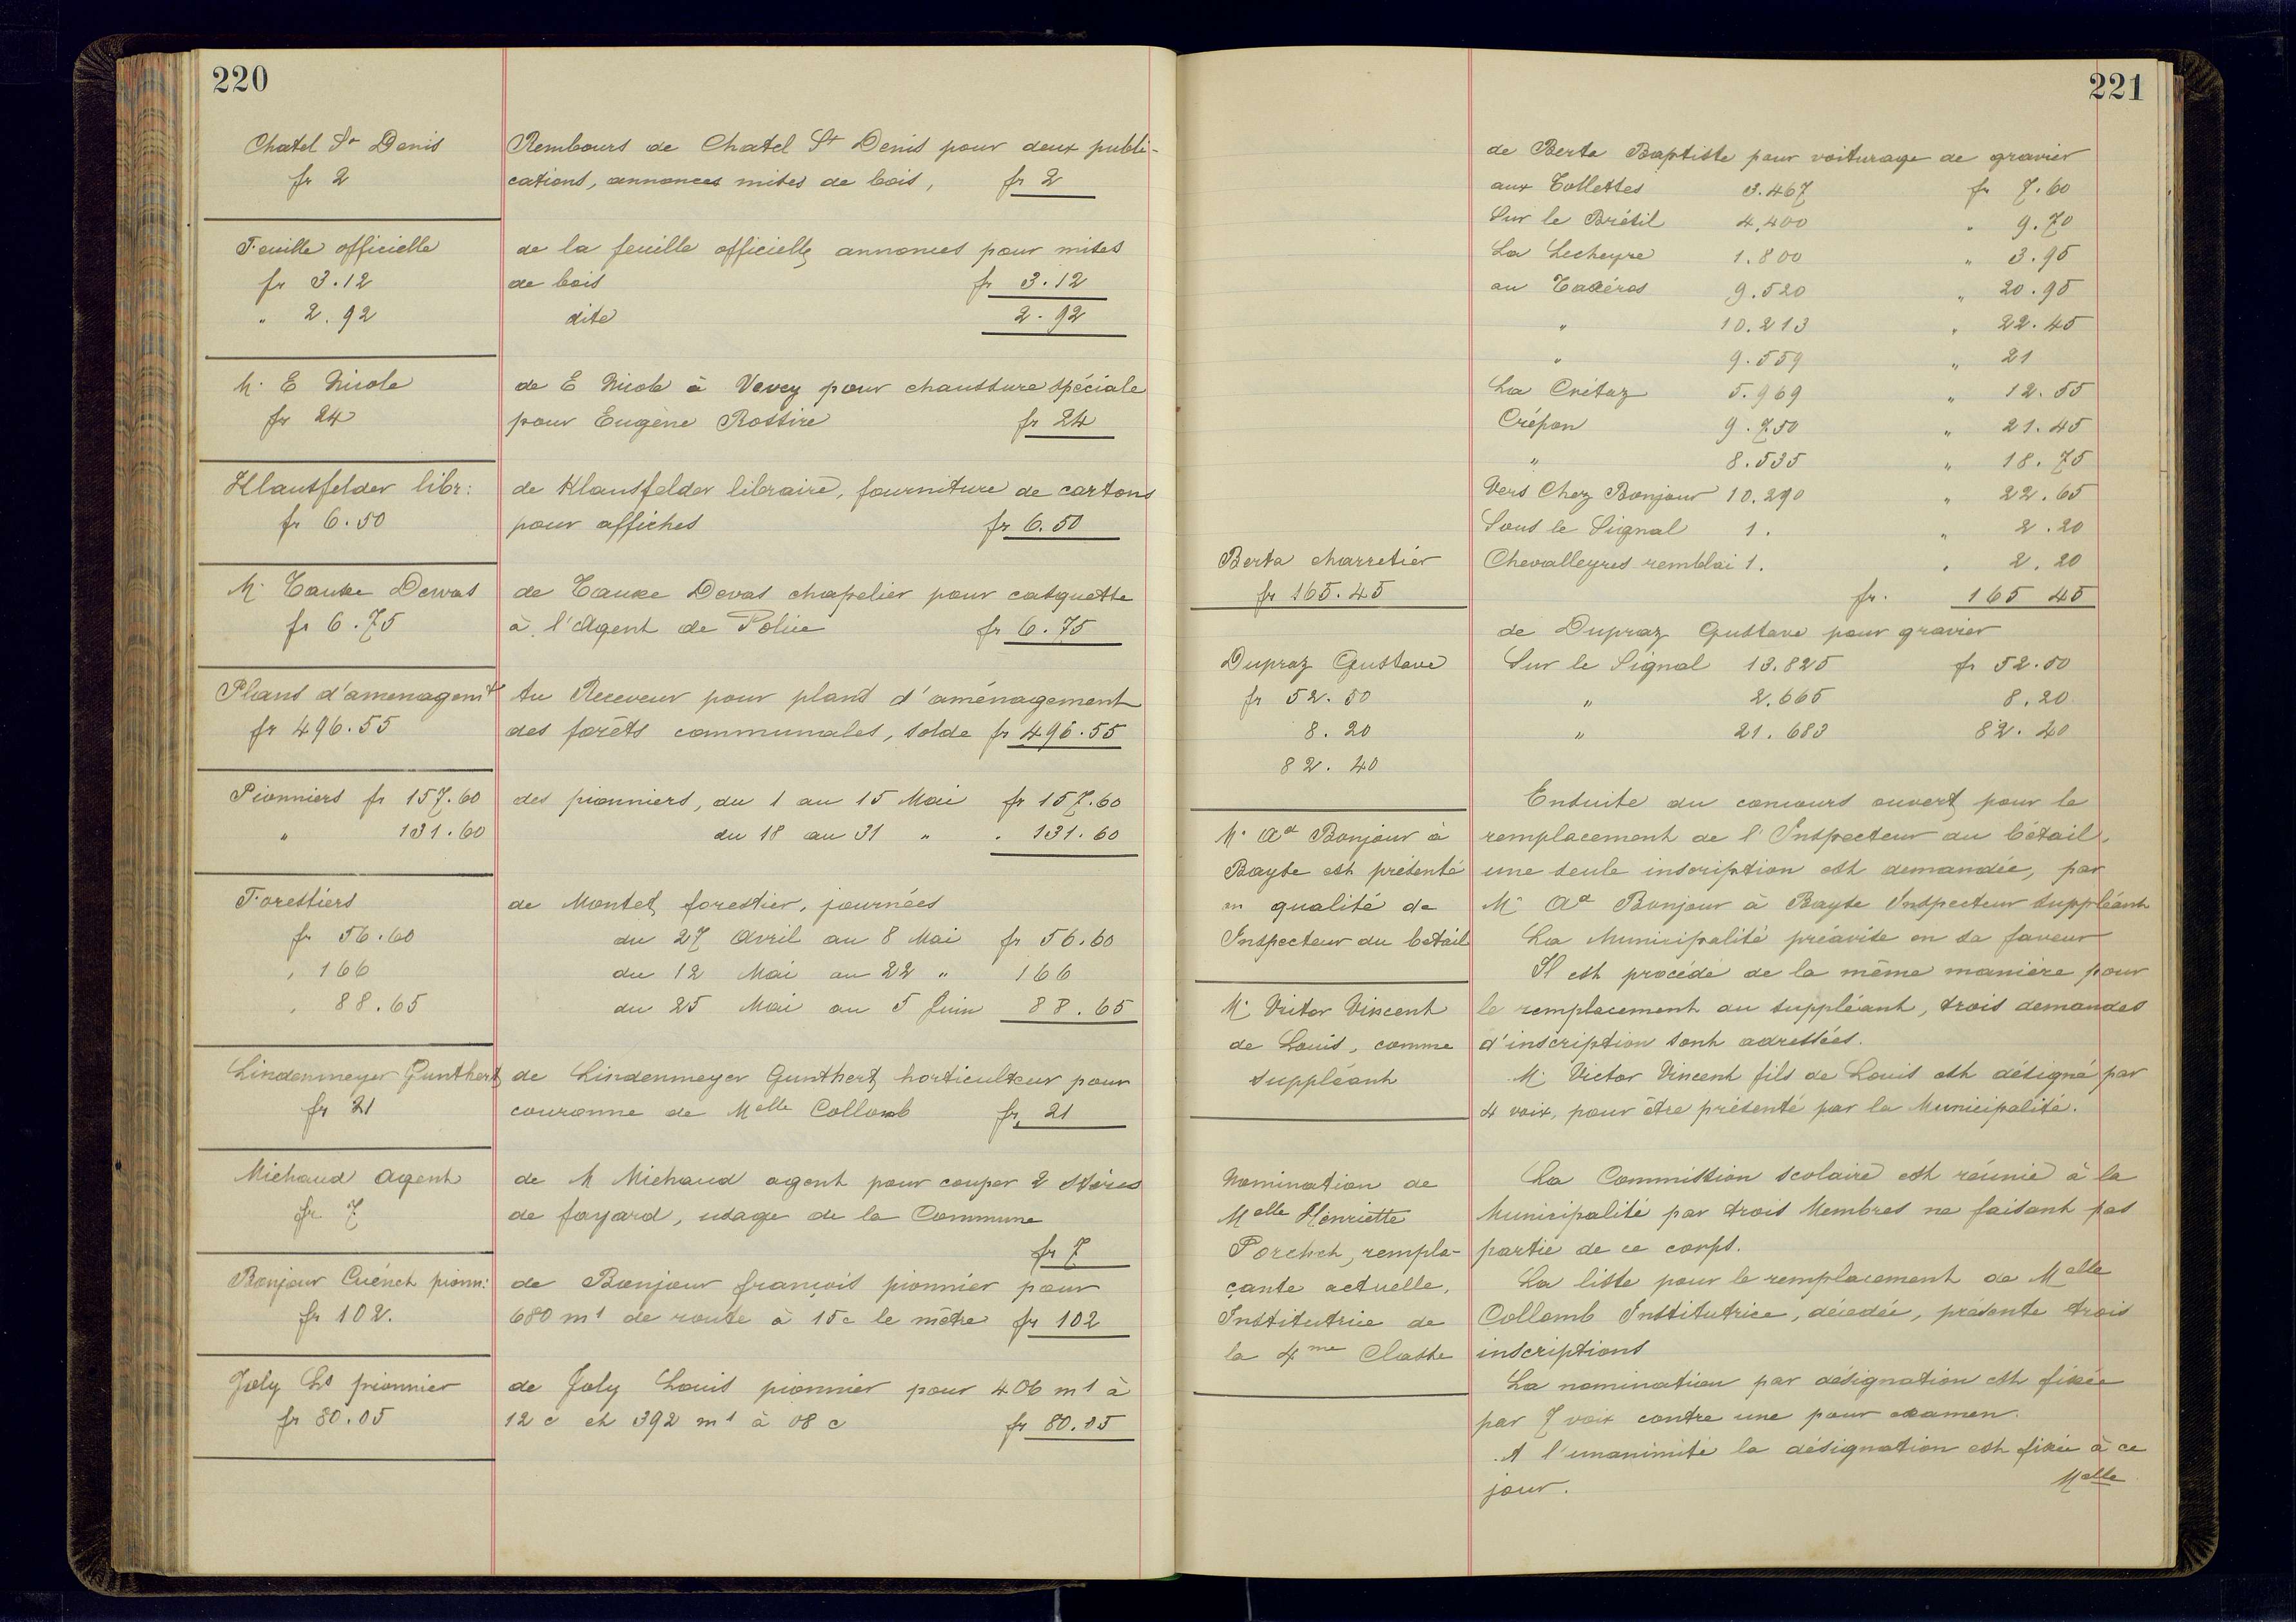 220
Chatel St Denis
fr 2
Rembours de Chatel St Denis pour deux publi-
cations, annonces mises de bois, fr 2
Feuille officielle
fr 3.12
" 2.92
de la feuille officielle, annonces pour mises
de bois fr 3.12
dite 2.92
M. E Nicole
fr 24
de E Nicole à Vevey pour chaussure spéciale
pour Eugène Rossire fr 24
Klausfelder libr:
fr 6.50
de Klausfelder libraire, fourniture de cartons
pour affiches fr 6.50
M. Devas
fr 6.75
de Devas chapelier pour casquette
à l'Agent de Police fr 6.75
Plans d'amenagemt
fr 496.55
Au Receveur pour plans d'aménagement
des forêts communales, solde fr 496.55
Pionniers fr 157.60
" 131.60
des pionniers, du 1 au 15 Mai fr 157.60
du 18 au 31 " " 131.60
Forestiers
fr 56.60
" 166
" 88.65
de Montet, forestier, journées
du 27 Avril au 8 Mai fr 56.60
du 12 Mai au 22 " 166
du 25 Mai au 5 Juin 88.65
Lindenmeyer Gunthert
fr 21
de Lindenmeyer Gunthert, horticulteur pour
couronne de Melle Collomb fr. 21
Michaud Agent
fr. 7
de M Michaud agent pour couper 2 stères
de foyard, usage de la Commune
fr 7
Bonjour Cuénet pionn:
fr 102.
de Bonjour François pionnier pour
680 m1 de route à 15c le mètre fr 102
Joly Ls pionnier
fr 80.05
de Joly Louis pionnier pour 406 m1 à
12 c et 392 m1 à 08 c fr 80.05
221
de Berta Baptiste pour voiturage de gravier
aux Tollettes 3.467 fr 7.60
Sur le Brésil 4,400 " 9.70
La Lecheyre 1.800 " 3.95
au 9.520 " 20.95
" 10.213 " 22.45
" 9.559 " 21
La Crétaz 5.969 " 12.55
Crépon 9.750 " 21.45
" 8.535 " 18.75
Vers Chez Bonjour 10.290 " 22.65
Sous le Signal 1. " 2.20
Berta charretier
fr 165.45
Chevalleyres remblai 1. " 2.20
fr. 165 45
de Dupraz Gustave pour gravier
Dupraz Gustave
fr 52.50
8.20
82.40
Sur le Signal 13.825 fr 52.50
" 2.665 8.20
" 21.683 82.40
M. Ad Bonjour à
Bayse est présenté
en qualité de
Inspecteur du bétail
Ensuite du concours ouvert, pour le
remplacement de l'Inspecteur du bétail,
une seule inscription est demandée, par
M. Ad Bonjour à Bayse Inspecteur suppléant
La Municipalité préavise en sa faveur
M. Victor Vincent
de Louis, comme
suppléant
Il est procédé de la même manière pour
le remplacement du suppléant, trois demandes
d'inscription sont adressées.
M. Victor Vincent fils de Louis est désigné par
4 voix, pour être présenté par la Municipalité.
Nomination de
Melle Henriette
Porchet, rempla-
çante actuelle,
Institutrice de
la 4me Classe
La Commission scolaire est réunie à la
Municipalité par trois Membres ne faisant pas
partie de ce corps.
La liste pour le remplacement de Melle
Collomb Institutrice, décédée, présente trois
inscriptions
La nomination par désignation est fixée
par 7 voix contre une pour examen.
A l'unanimité la désignation est fixée à ce
jour. Melle